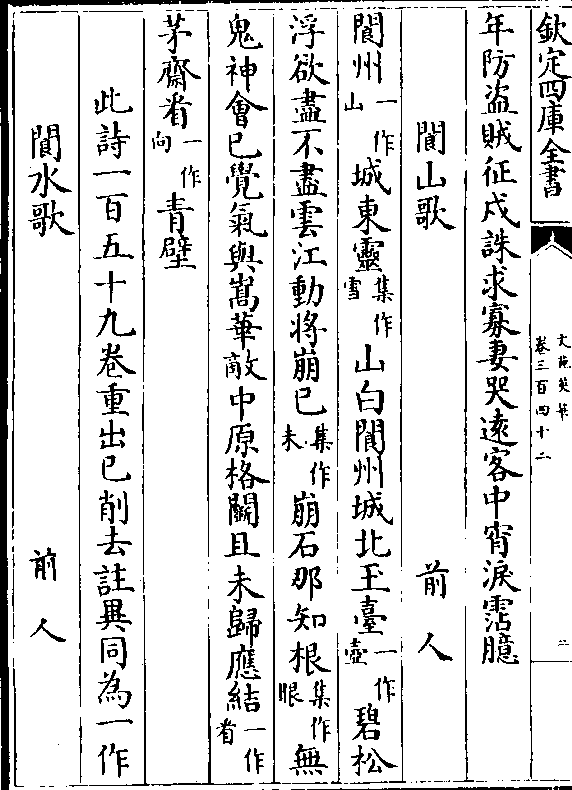 欽定四庫全書
文苑英華
卷三百四十二
二
年防盜賊征戍誅求寡妻哭遠客中宵淚霑臆
閬山歌 前人
閬州一作山城東靈集作雪山白閬州城北玉臺一作壺碧松
浮欲盡不盡雲江動將崩已集作未崩石那知根集作眼無
鬼神會已覺氣與嵩華敵中原格鬭且未歸應結一作看
茅齋看一作向青壁
此詩一百五十九卷重出已削去註異同為一作
閬水歌 前人